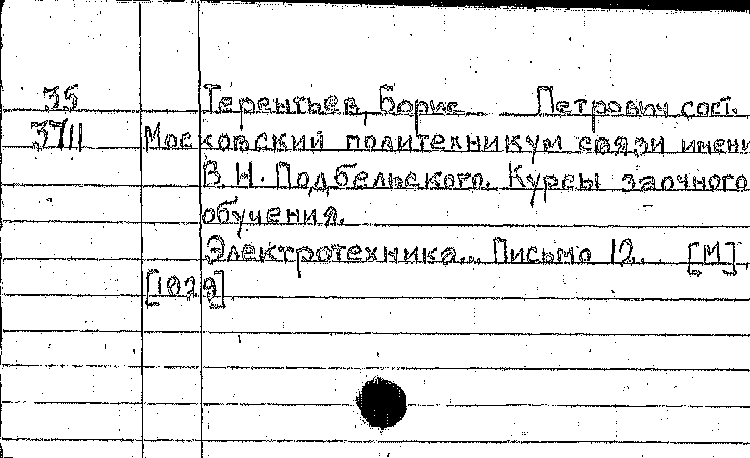 35 Терентьев, Борис Петрович сост.
3711 Московский политехникум связи имени
В.Н. Подбельского. Курсы заочного
обучения.
Электротехника... Письмо 12. [М],
[1929]